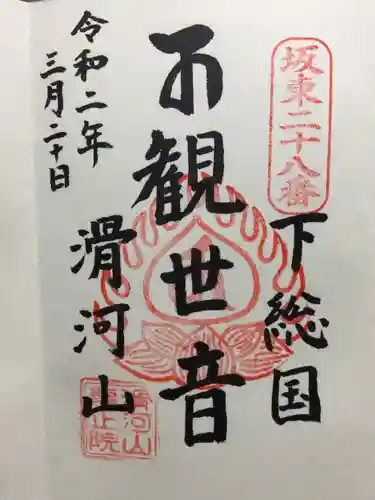 坂東二十八番
下総国
観世音
滑河山
滑河山
龍正院
令和二年
三月二十日